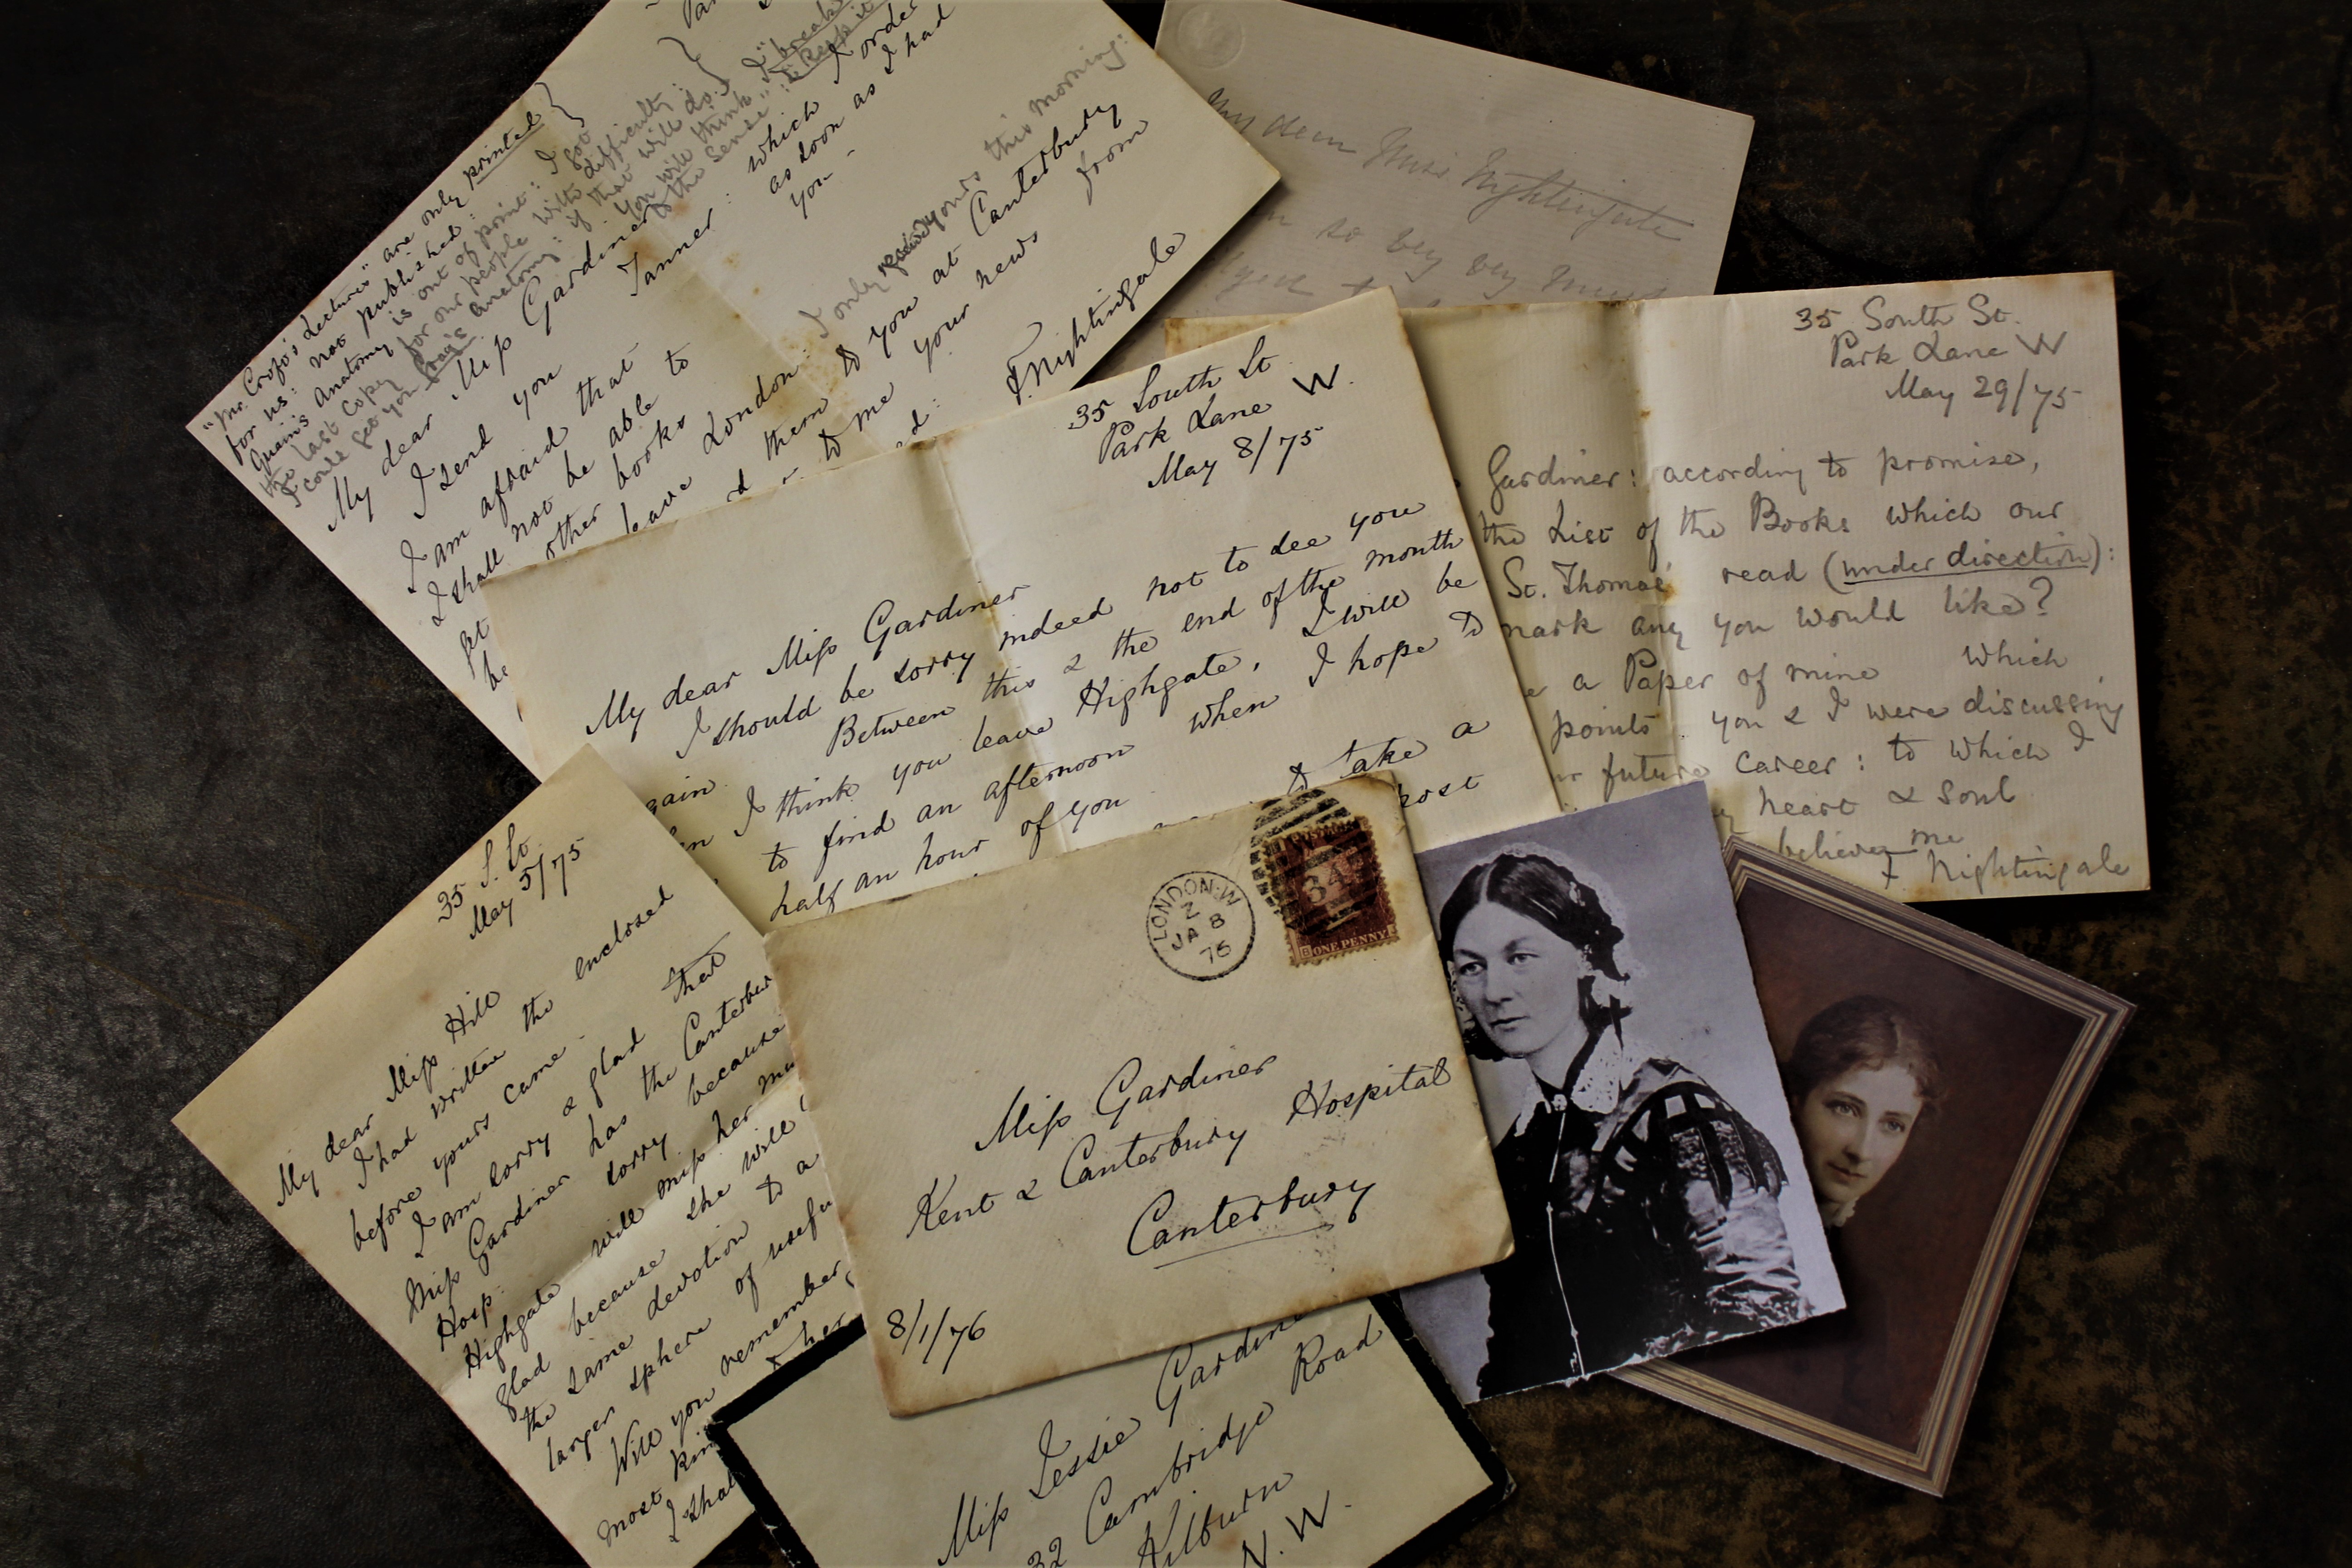 "Mr. Croft's Lectures" are only printed
for us: not published:
Quain's Anatomy is out of print: I
the last copy for our people with difficulty:
I could get you Gray's Anatomy: if that will do.
You will think "I break
to the sense":
My dear Miss Gardiner
I send you Tanner: which I order
as soon as I had
you -
I am afraid that
I shall not be able to
get other books
be leave London:
I only received yours this morning:
them to you at Canterbury
to me your news from
F. Nightingale
My dear Miss Nightingale
so very very much
35 South St
Park Lane W.
May 8/75
My dear Miss Gardiner
I should be sorry indeed not to see you
again. Between this & the end of the month
when I think you leave Highgate, I will be
to find an afternoon when I hope to
half an hour of you
to take a
post
35 South St.
Park Lane W
May 29/75
Gardiner: according to promise,
the List of the Books which our
St. Thomas' read (under direction):
mark any you would like?
a Paper of mine which
points you & I were discussing
future career: to which I
heart & soul
believe me
F Nightingale
35 S. St.
May 5/75
My dear Miss Hill
I had written the enclosed
before yours came -
I am sorry & glad that
Miss Gardiner has the Canterbury
Hosp. sorry because
Highgate will miss her
glad because she will
the same devotion to a
larger sphere of
Will you remember
most kin
& her
I shall
LONDON·W
Z
JA 8
76
34
ONE PENNY
Miss Gardiner
Kent & Canterbury Hospital
Canterbury
8/1/76
Miss Jessie Gardiner
32 Cambridge Road
Kilburn
N.W.